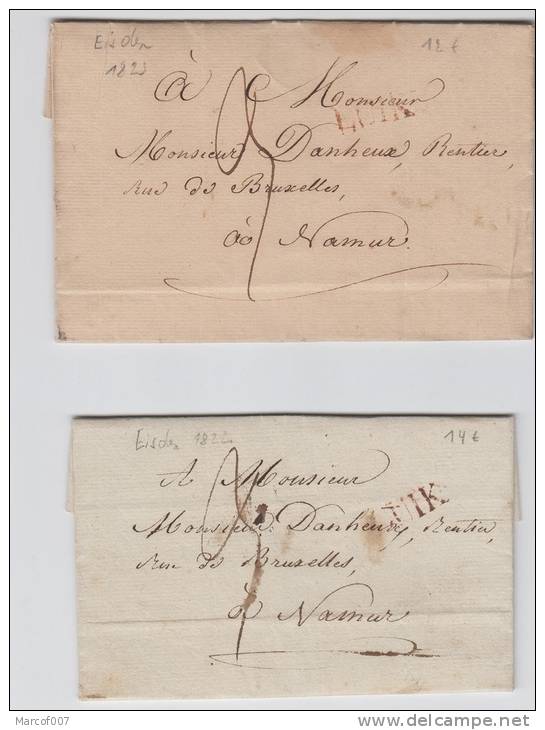 Eisden
1823
12 €
LUIK
à Monsieur
Monsieur Danheux, Rentier,
Rue de Bruxelles,
à Namur.
Eisden 1822
14 €
LUIK
A Monsieur
Monsieur Danheux, Rentier,
Rue de Bruxelles,
à Namur
Marcof007
www.delcampe.net